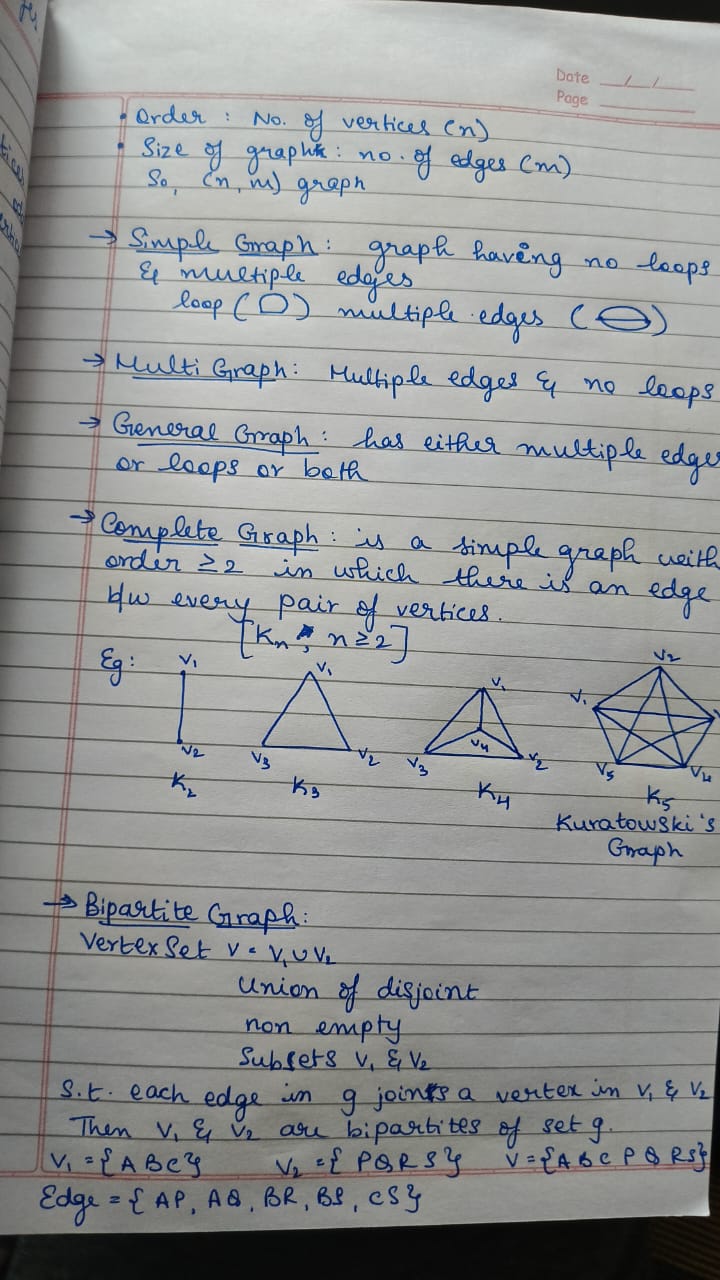 Date __/__/__
Page
• Order : No. of vertices (n)
• Size of graph : no. of edges (m)
So, (n, m) graph
→ Simple Graph : graph having no loops
& multiple edges
loop ( ) multiple edges ( )
→ Multi Graph : Multiple edges & no loops
→ General Graph : has either multiple edges
or loops or both
→ Complete Graph : is a simple graph with
order ≥ 2 in which there is an edge
b/w every pair of vertices.
[Kn , n ≥ 2]
Eg :
V1 V2 K2
V1 V3 V2 K3
V1 V4 V3 V2 K4
V2 V1 V5 V4 K5
Kuratowski's
Graph
→ Bipartite Graph :
Vertex Set V = V1 ∪ V2
Union of disjoint
non empty
Subsets V1 & V2
S.t. each edge in g joints a vertex in V1 & V2
Then V1 & V2 are bipartites of set g.
V1 = {A B C} V2 = { P Q R S } V = {A B C P Q R S}
Edge = { AP, AQ, BR, BS, CS }